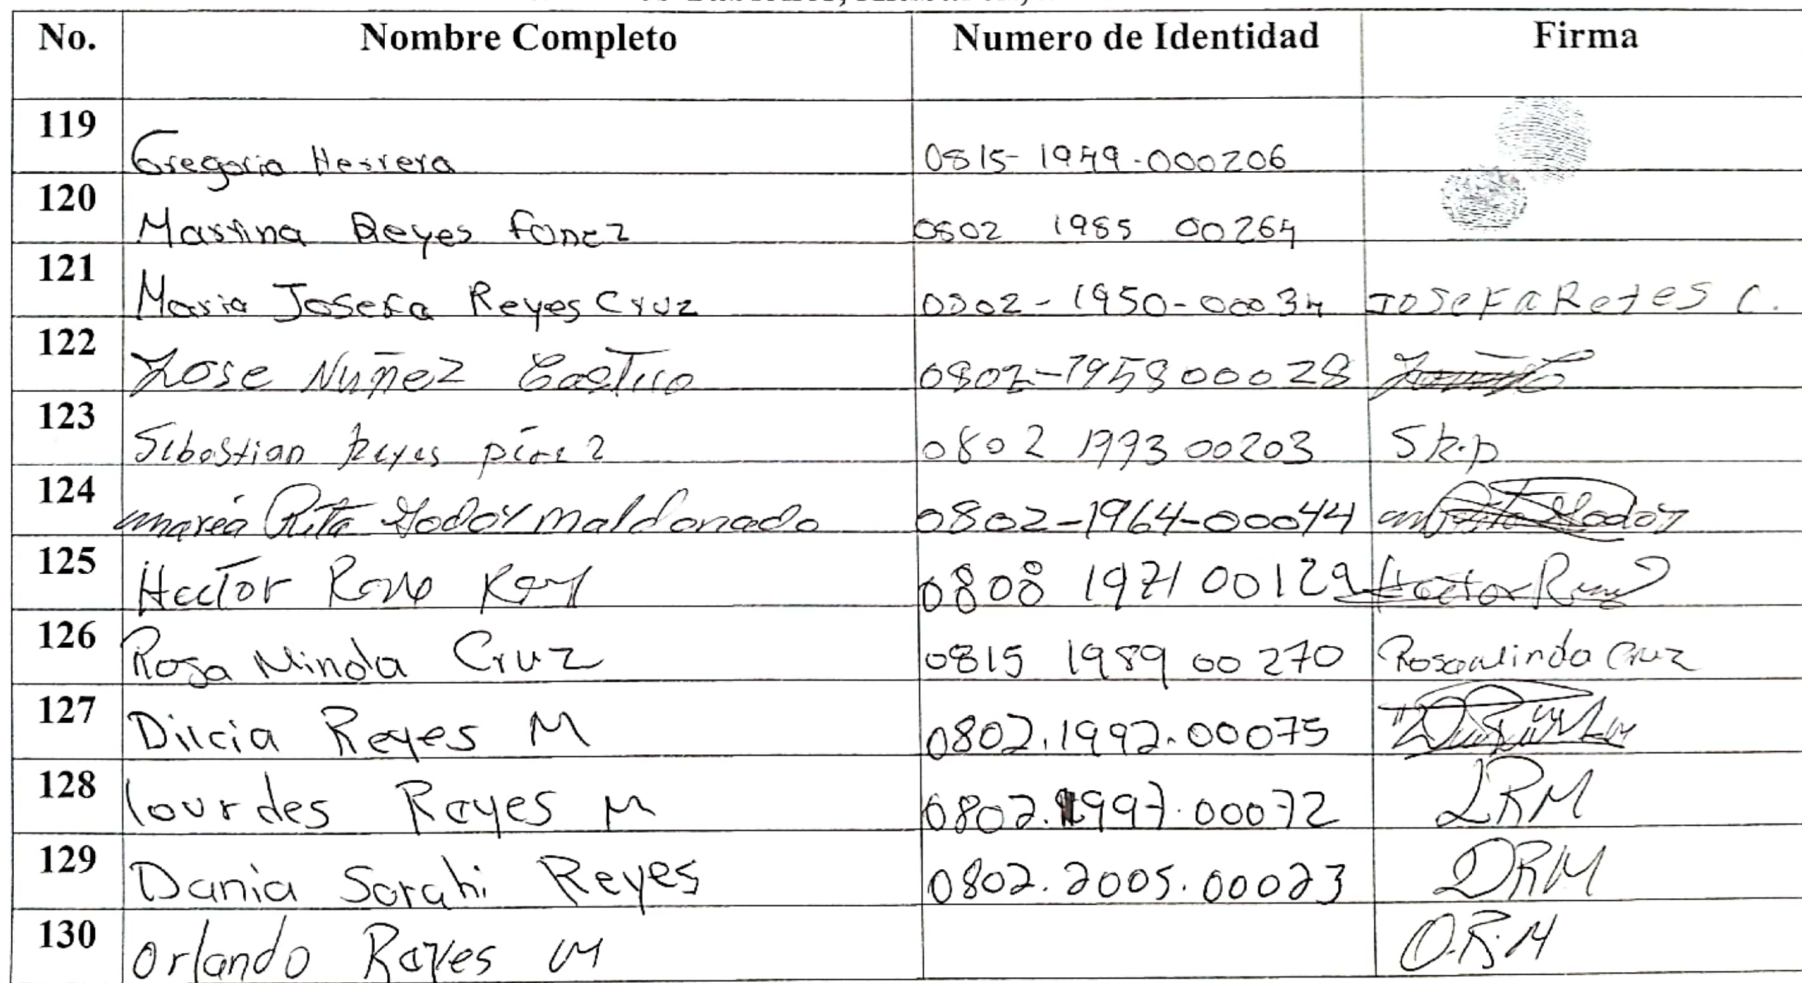 No. Nombre Completo Numero de Identidad Firma
119 Gregoria Herrera 0815-1949-000206
120 Martina Reyes Funez 0802 1985 00264
121 Maria Josefa Reyes Cruz 0802-1950-00034 JOSEFA Reyes C.
122 Jose Nuñez Castro 0802-1958 00028
123 Sebastian Reyes pérez 0802 1993 00203 S R.p
124 maría Rita Godoy maldonado 0802-1964-00044 Godoy
125 Hector 0808 1971 00129 Hector
126 Rosa Ninda Cruz 0815 1989 00 270 Rosalinda Cruz
127 Dilcia Reyes M 0802.1992.00075
128 lourdes Reyes M 0802.1997.00072 LRM
129 Dania Sarahi Reyes 0802.2005.00023 DRM
130 Orlando Reyes M O.R.M